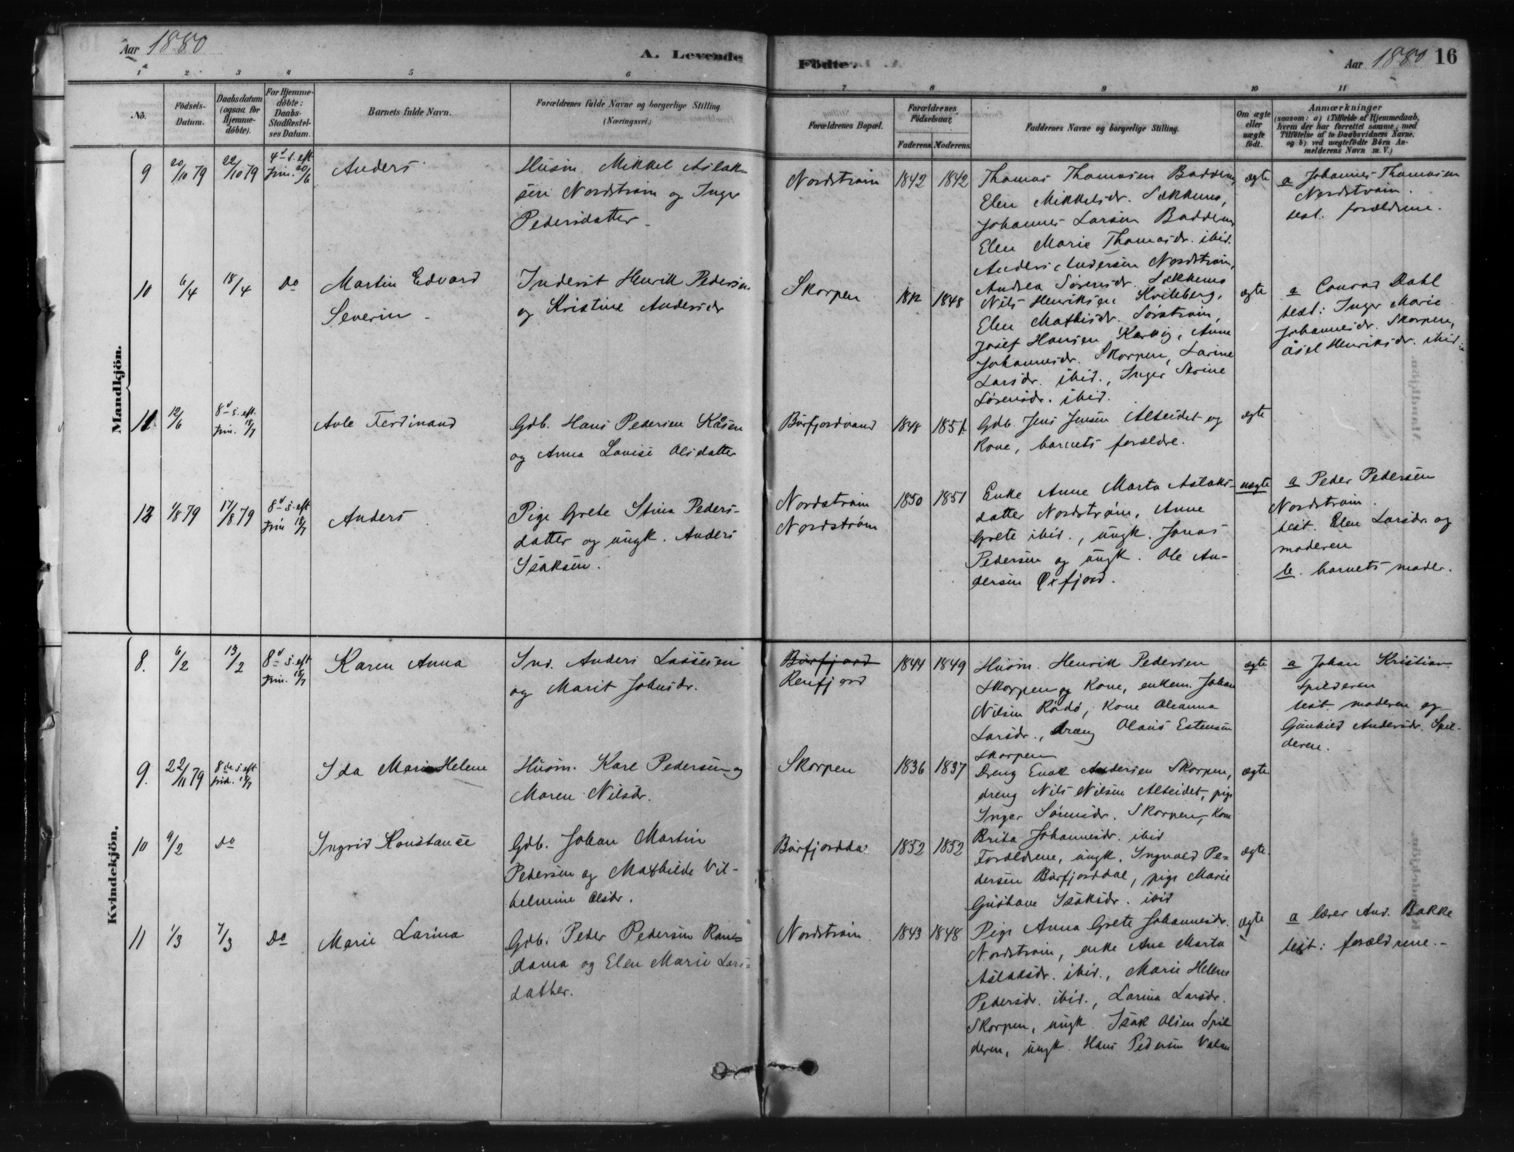 Aar 1880
A. Levende
Fødte.
Aar 1880 16
1 2 3 4 5 6 7 8 9 10 11
No.
Fødsels-
Datum.
Daabsdatum
(ogsaa for
Hjemme-
døbte).
For Hjemme-
døbte:
Daabs-
Stadfæstel-
ses Datum.
Barnets fulde Navn.
Forældrenes fulde Navne og borgerlige Stilling.
(Næringsvei.)
Forældrenes Bopæl.
Forældrenes
Fødselsaar.
Faderens. Moderens.
Faddernes Navne og borgerlige Stilling.
Om ægte
eller
uægte
født.
Anmærkninger
(saasom: a) i Tilfælde af Hjemmedaab,
hvem der har forrettet samme, med
Tilføielse af to Daabsvidners Navne.
og b) ved uægtefødte Børn An-
melderens Navn m. V.)
Mandkjön.
9 20/10 79 22/10 79 4d s. eft
Trin. 20/6
Anders
Husm. Mikkel Aslak-
sen Nordstrøm og Inger
Pedersdatter
Nordstrøm 1842 1842
Thomas Thomasen Badderen,
Elen Mikkelsdr. Sækkemo,
Johannes Larsen Badderen
Elen Marie Thomasdr. ibid.
Anders Andersen Nordstrøm,
Andrea Sørensdr. Sækkemo
ægte
a Johannes Thomasen
Nordstrøm.
test. forældrene.
10 6/4 18/4 do
Martin Edvard
Severin
Inderst Henrik Pedersen
og Kristine Andersdr
Skorpen 1842 1848
Nils Henriksen Kviteberg,
Elen Mathisdr. Sørstrøm,
Josef Hansen Kervig, Anne
Johannesdr. Skorpen, Larine
Larsdr. ibid., Inger Serine
Sørensdr. ibid.
ægte
a Conrad Dahl
test: Inger Marie
Johannesdr. Skorpen,
Åsel Henriksdr. ibid
11 12/6 8d s. eft
Trin. 18/7
Avle Ferdinand
Gdb. Hans Pedersen Kåsen
og Anna Lovise Olsdatter
Burfjordvand 1848 1851
Gdb. Jens Jensen Alteidet og
Kone, barnets forældre.
ægte
12 4/8 79 17/8 79 8d s. eft
Trin 18/7
Anders
Pige Grete Stina Peders-
datter og ungk. Anders
Isaksen.
Nordstrøm
Nordstrøm
1850 1851
Enke Anne Marta Aslaks-
datter Nordstrøm, Anne
Grete ibid., ungk. Jonas
Pedersen og ungk. Ole An-
dersen Øxfjord.
uægte
a Peder Pedersen
Nordstrøm.
test. Elen Larsdr og
moderen
b. barnets moder.
Kvindekjön.
8. 6/2 13/2 8d s. eft
Trin. 18/7
Karen Anna
Ind. Anders Lassesen
og Marit Johnsdr.
Burfjord
Renfjord
1844 1849
Husm. Henrik Pedersen
Skorpen og Kone, enkem. Johan
Nilsen Rødø, Kone Oleanna
Larsdr., dreng Olaus Estensen
Skorpen
ægte
a Johan Kristian
Spilderen
test. moderen og
Gunhild Andersdr. Spil-
deren.
9. 22/11 79 8de s. eft
Trin. 18/7
Ida Marie Helene
Husm. Kare Pedersen og
Maren Nilsdr.
Skorpen 1836 1837
Dreng Enok Andersen Skorpen,
dreng Nils Nilsen Alteidet, pige
Inger Sørensdr. Skorpen, Kone
Brita Johannesdr. ibid
ægte
10 9/2 do
Ingrid Konstanse
Gdb. Johan Martin
Pedersen og Mathilde Vil-
helmine Olsdr.
Burfjorddal 1852 1852
Forældrene, ungk. Ingvald Pe-
dersen Burfjorddal, pige Marie
Gustave Isaksdr. ibid
ægte
11 1/3 7/3 do
Marie Larina
Gdb. Peder Pedersen
og Elen Marie Lars-
datter.
Nordstrøm 1843 1848
Pige Anna Grete Johannesdr.
Nordstrøm, enke Ane Marta
Aslaksdr. ibid., Marie Helene
Pedersdr. ibid., Larina Larsdr.
Skorpen, ungk. Isak Olsen Spil
deren, ungk. Hans Pedersen
ægte
a lærer And. Bakke
test: forældrene.